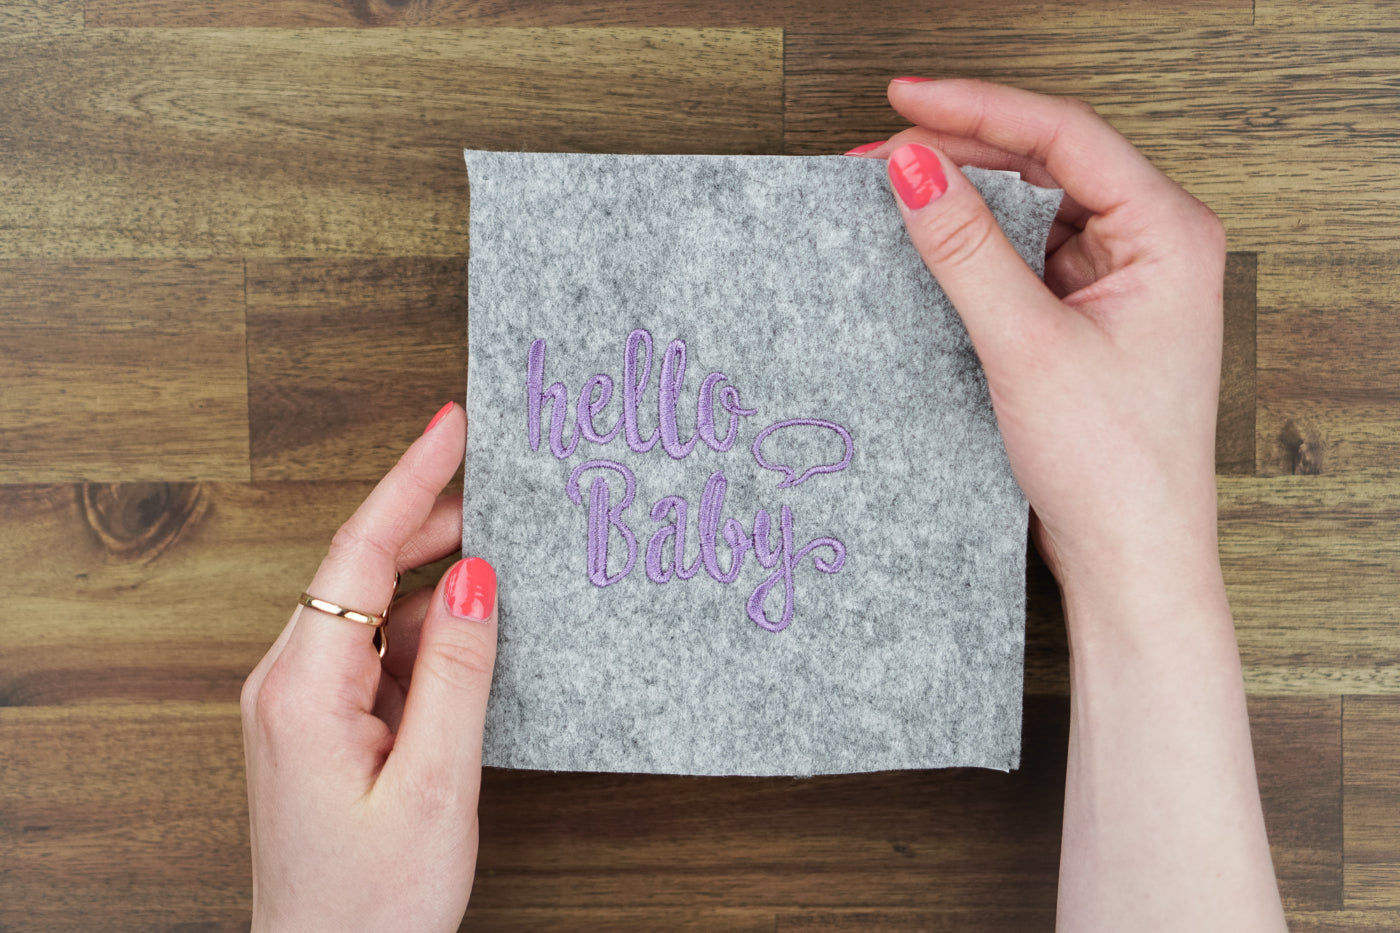 hello
Baby